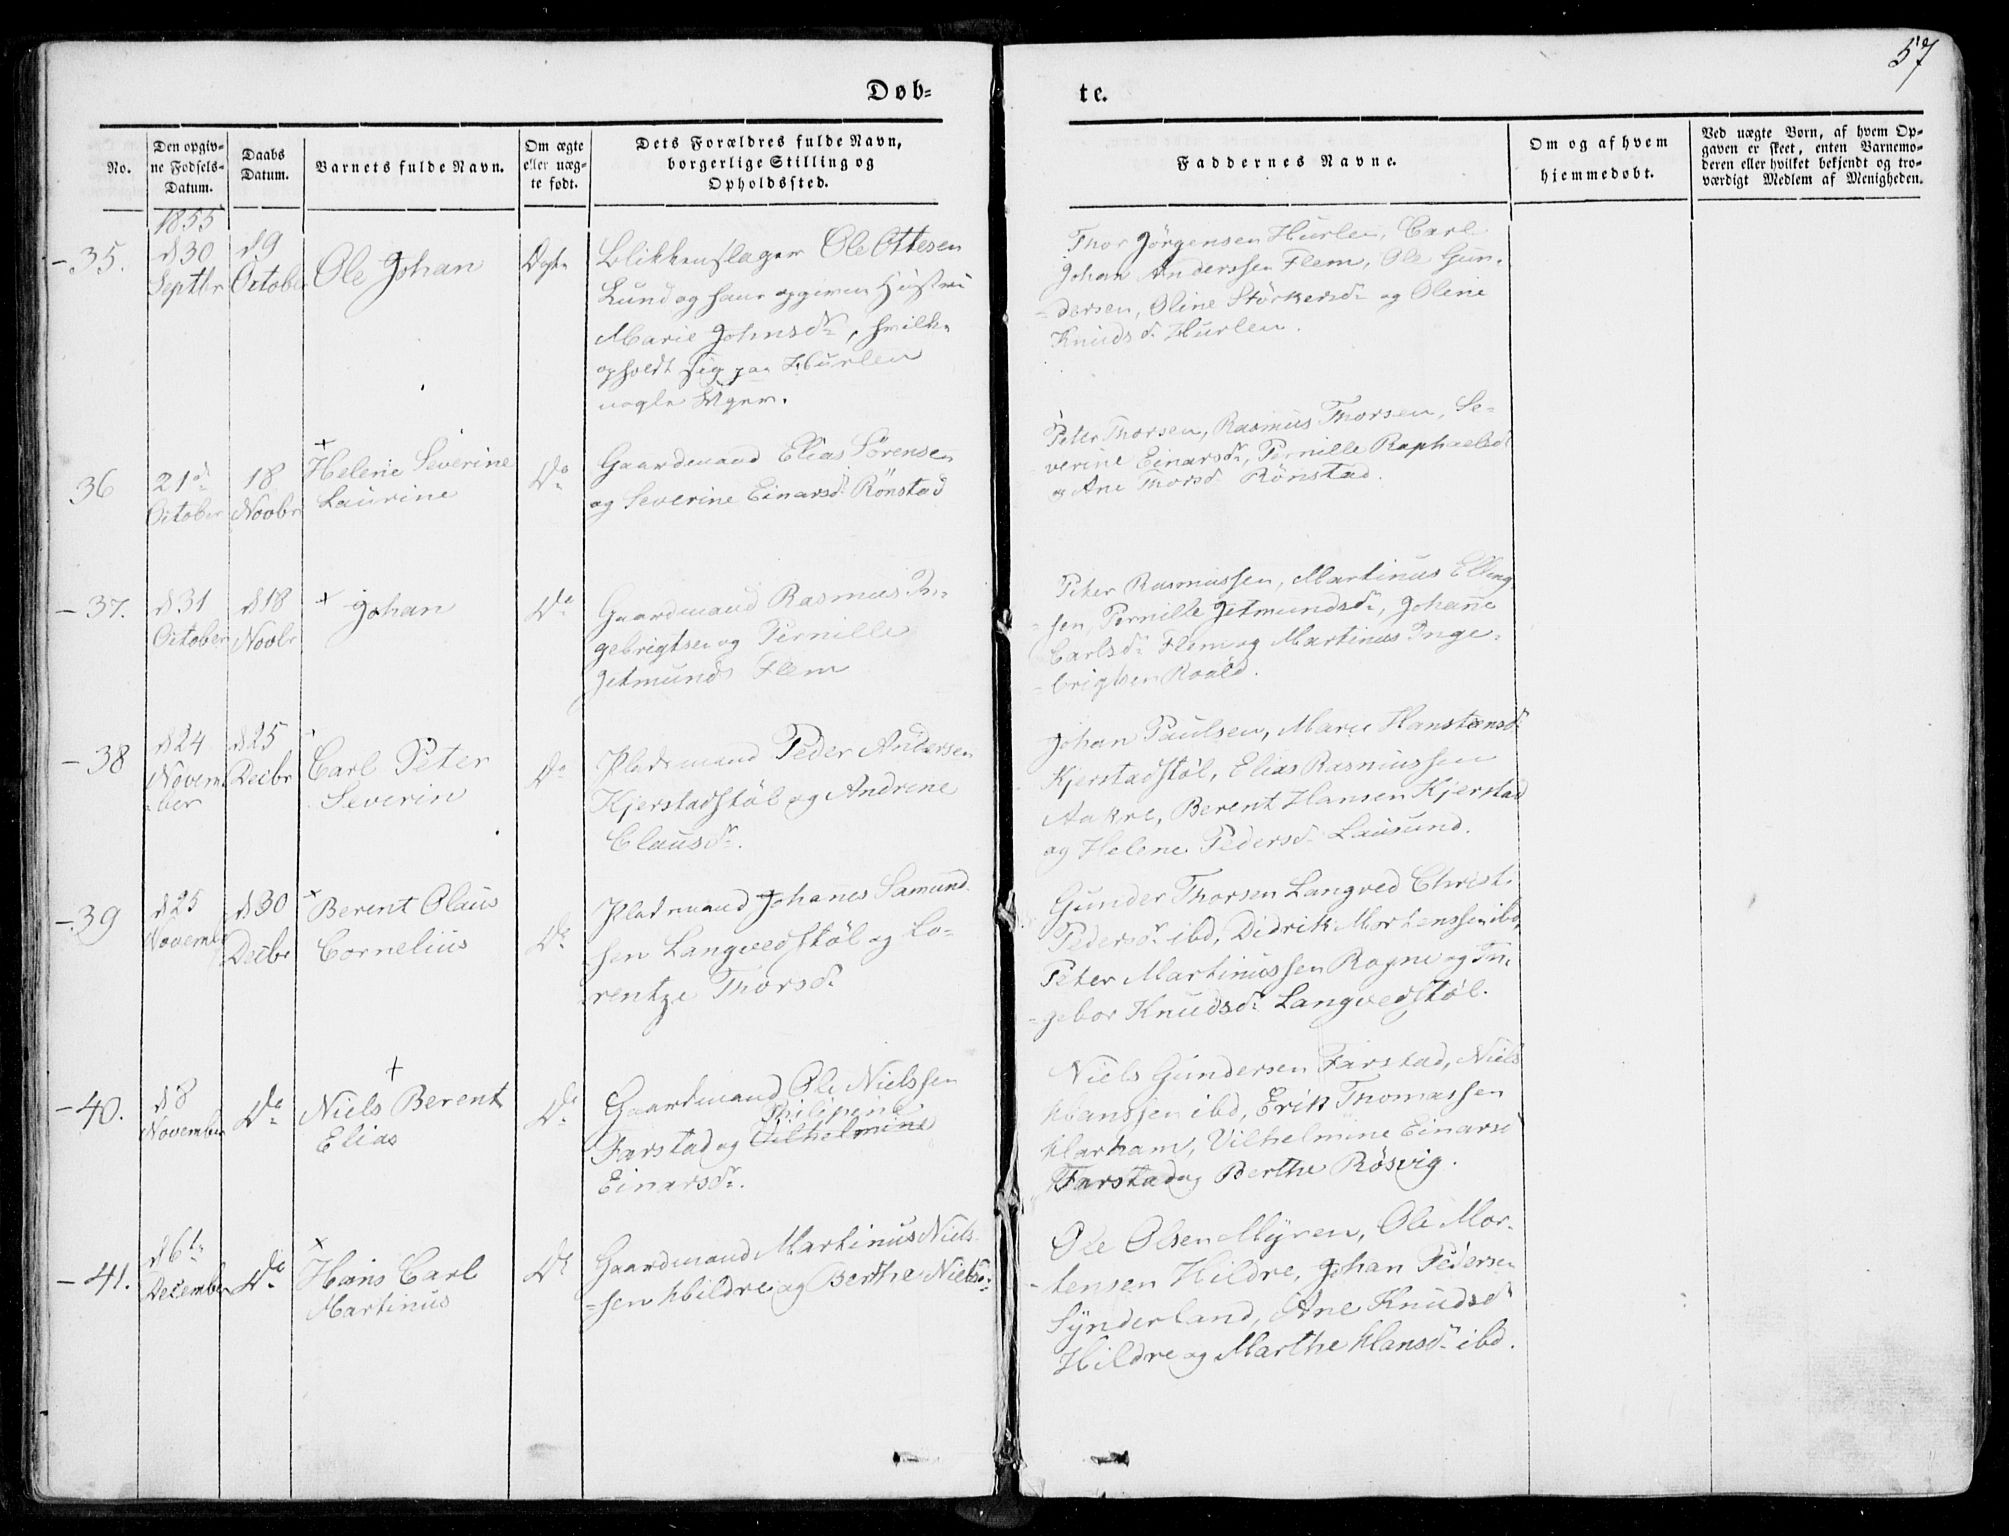 57
Døb-
te.
No.
Den opgiv-
ne Fødsels-
Datum.
Daabs
Datum.
Barnets fulde Navn.
Om ægte
eller uæg-
te født.
Dets Forældres fulde Navn,
borgerlige Stilling og
Opholdssted.
Faddernes Navne.
Om og af hvem
hjemmedøbt.
Ved uægte Børn, af hvem Op-
gaven er skeet, enten Barnemo-
deren eller hvilket bekjendt og tro-
værdigt Medlem af Menigheden.
1855
- 35.
d 30
Septbr
d 9
October
Ole Johan
Ægte
Blikkenslager Ole Ottesen
Lund og hans opgivne Hustru
Marie Johnsdr, hvilke
opholdt sig paa Hurlen
nogle Uger.
Thor Jörgensen Hurlen, Carl
Johan Anderssen Flem, Ole Gun-
dersen, Oline Störkersdr og Oline
Knudsdr Hurlen.
36
21d
October
18
Novbr
+
Helene Severine
Laurine
Do
Gaardmand Elias Sörensen
og Severine Einarsdr Rönstad
Peter Thorsen, Rasmus Thorsen, Se-
verine Einarsdr, Pernille Raphaelsdr
og Ane Thorsdr Rönstad.
- 37.
d 31
October
d 18
Novbr
+ Johan
Do
Gaardmand Rasmus In-
gebrigtsen og Pernille
Jetmunds Flem
Peter Rasmussen, Martinus Elling-
sen, Pernille Jetmundsdr, Johane
Carlsdr Flem og Martinus Inge-
brigtsen Roald.
- 38
d 24
Novem-
ber
d 25
Decbr
Carl Peter
Severin
Do
Pladsmand Peder Andersen
Kjerstadstöl og Andrine
Clausdr.
Johan Paulsen, Marie Hanstensdr
Kjerstadstöl, Elias Rasmussen
Aakre, Berent Hansen Kjerstad
og Helene Pedersdr Lausund.
- 39
d 25
November
d 30
Decbr
+
Berent Olaus
Cornelius
Do
Pladsmand Johanes Samund-
sen Langvedstöl og Lo-
rentze Thorsdr
Gunder Thorsen Langved Christi
Pedersdr ibd, Didrik Mortenssen ibd,
Peter Martinussen Rogne og In-
gebor Knudsdr Langvedstöl.
- 40.
d 8
November
Do
+
Niels Berent
Elias
Do
Gaardmand Ole Nielssen
Philipine
Farstad og Vilhelmine
Einarsdr.
Niels Gundersen Farstad, Niels
Hanssen ibd, Erik Thomassen
Harham, Vilhelmine Einarsd
Farstad og Berthe Rösvig.
- 41.
d 6te
December
Do
+
Hans Carl
Martinus
Do
Gaardmand Martinus Niels-
sen Hildre og Berthe Nielsdr
Ole Olsen Myren, Ole Mor-
tensen Hildre, Johan Pedersen
Synderland, Ane Knudsdr
Hildre og Marthe Hansdr ibd.